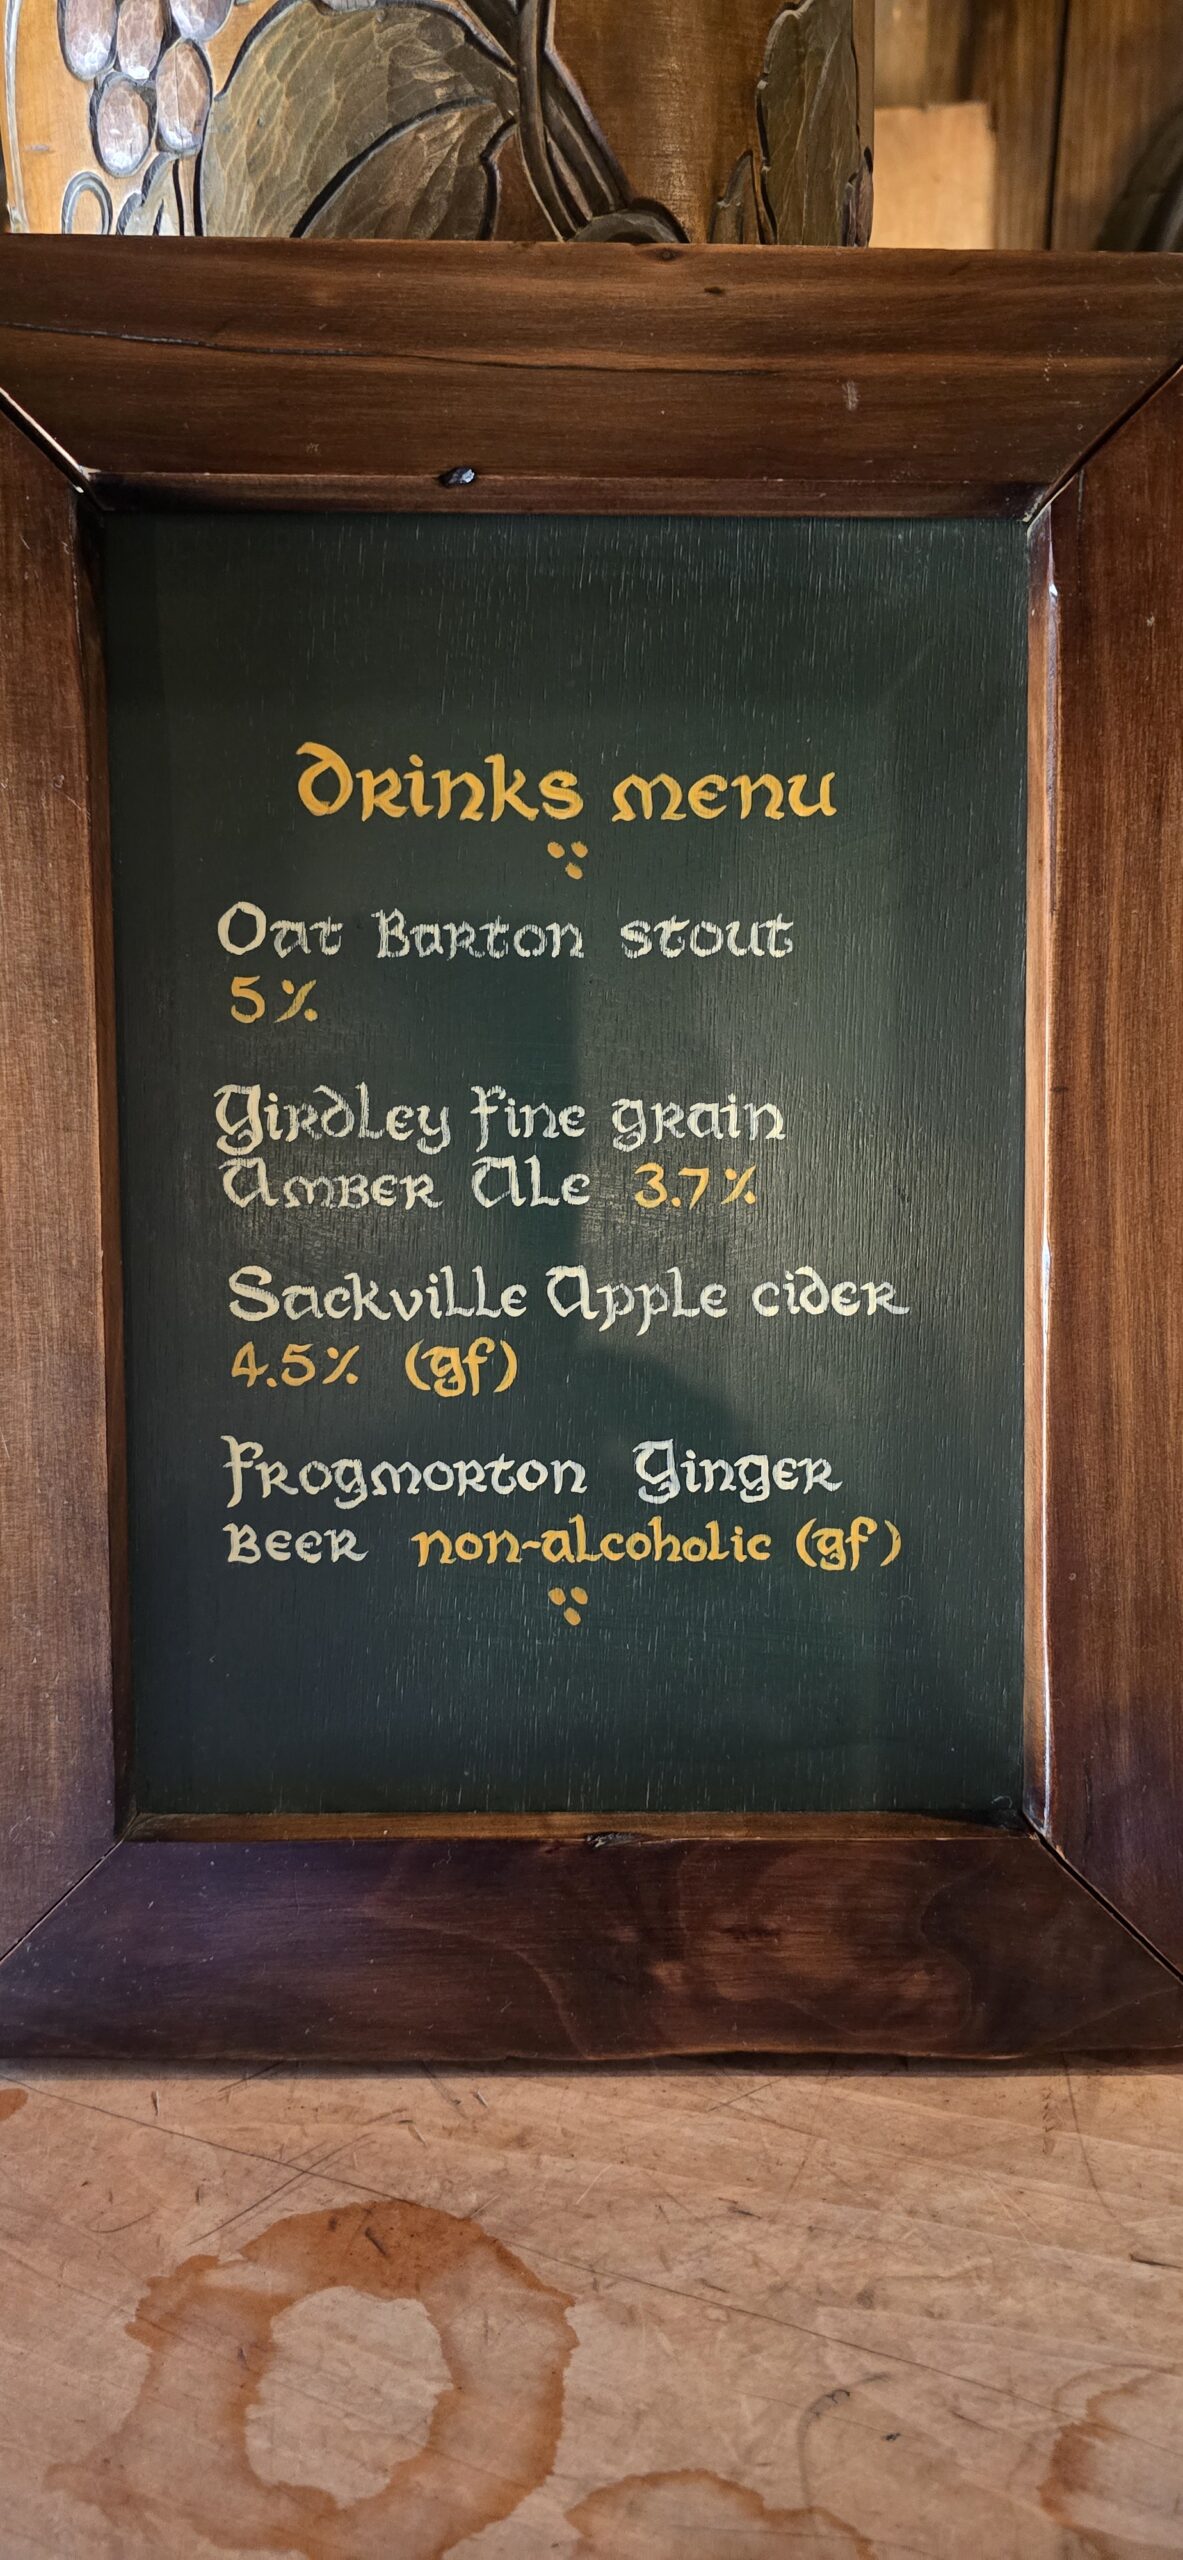 Drinks menu
Oat Barton stout
5%
Girdley fine grain
Amber Ale 3.7%
Sackville Apple cider
4.5% (gf)
Frogmorton Ginger
Beer non-alcoholic (gf)